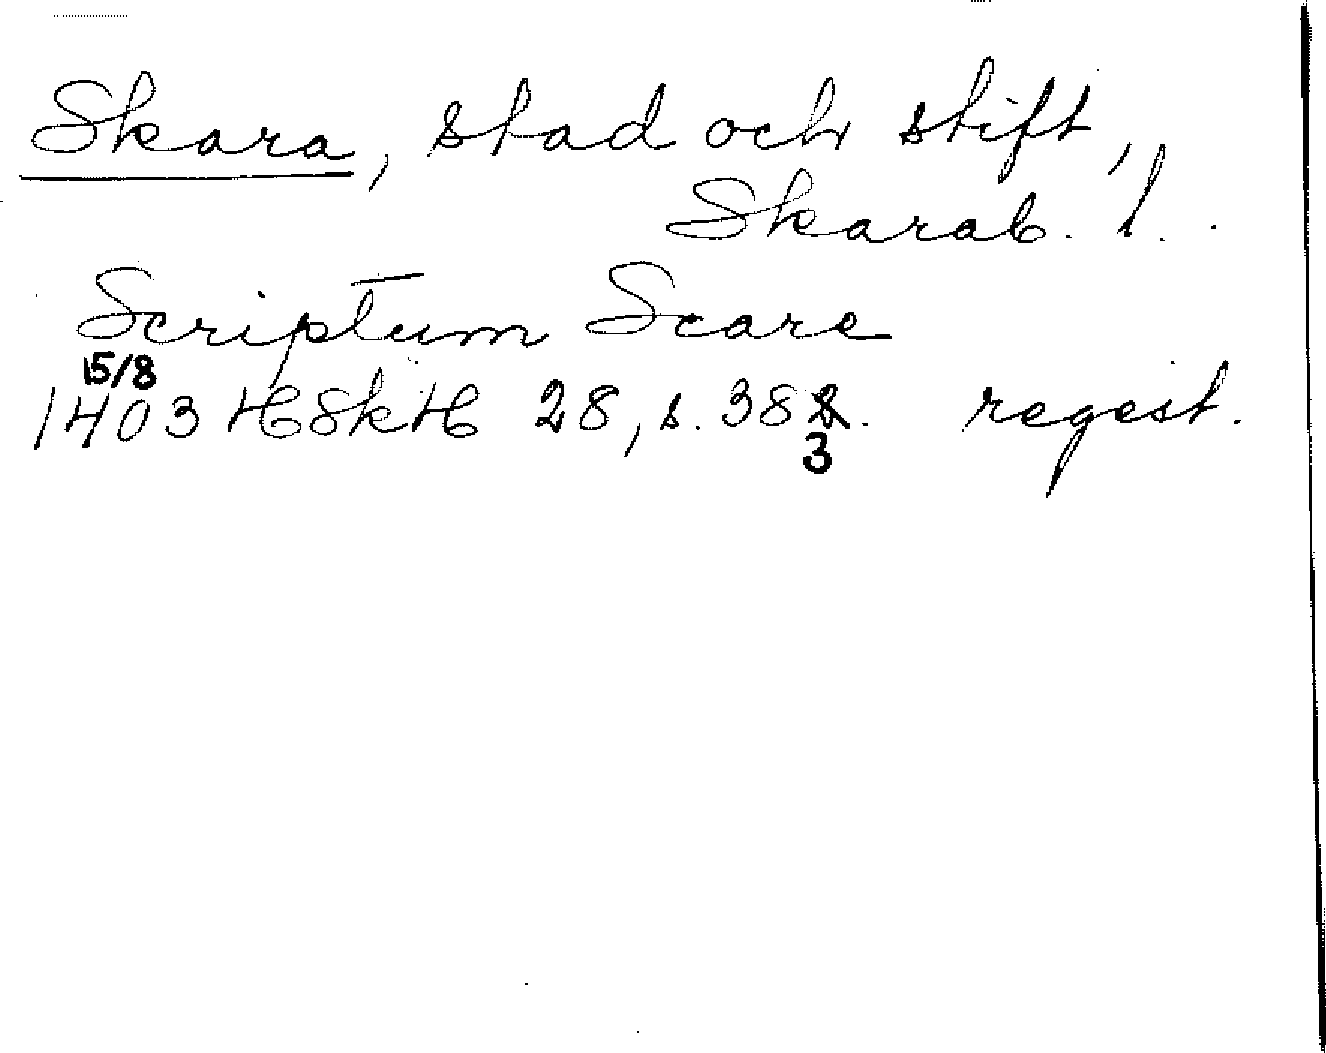 Skara, stad och stift,
Skarab. l.
Scriptum Scare
15/8
1403 HSkH 28, s. 382. regest.
3